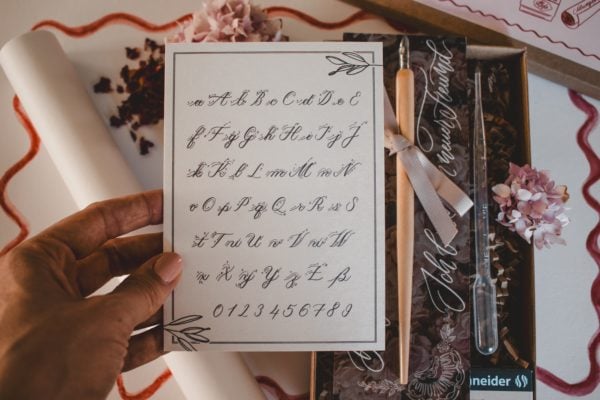 a A b B c C d D e E
f F g G h H i I j J
k K l L m M n N
o O p P q Q r R s S
t T u U v V w W
x X y Y z Z ß
0 1 2 3 4 5 6 7 8 9
neuer Freund
hneider